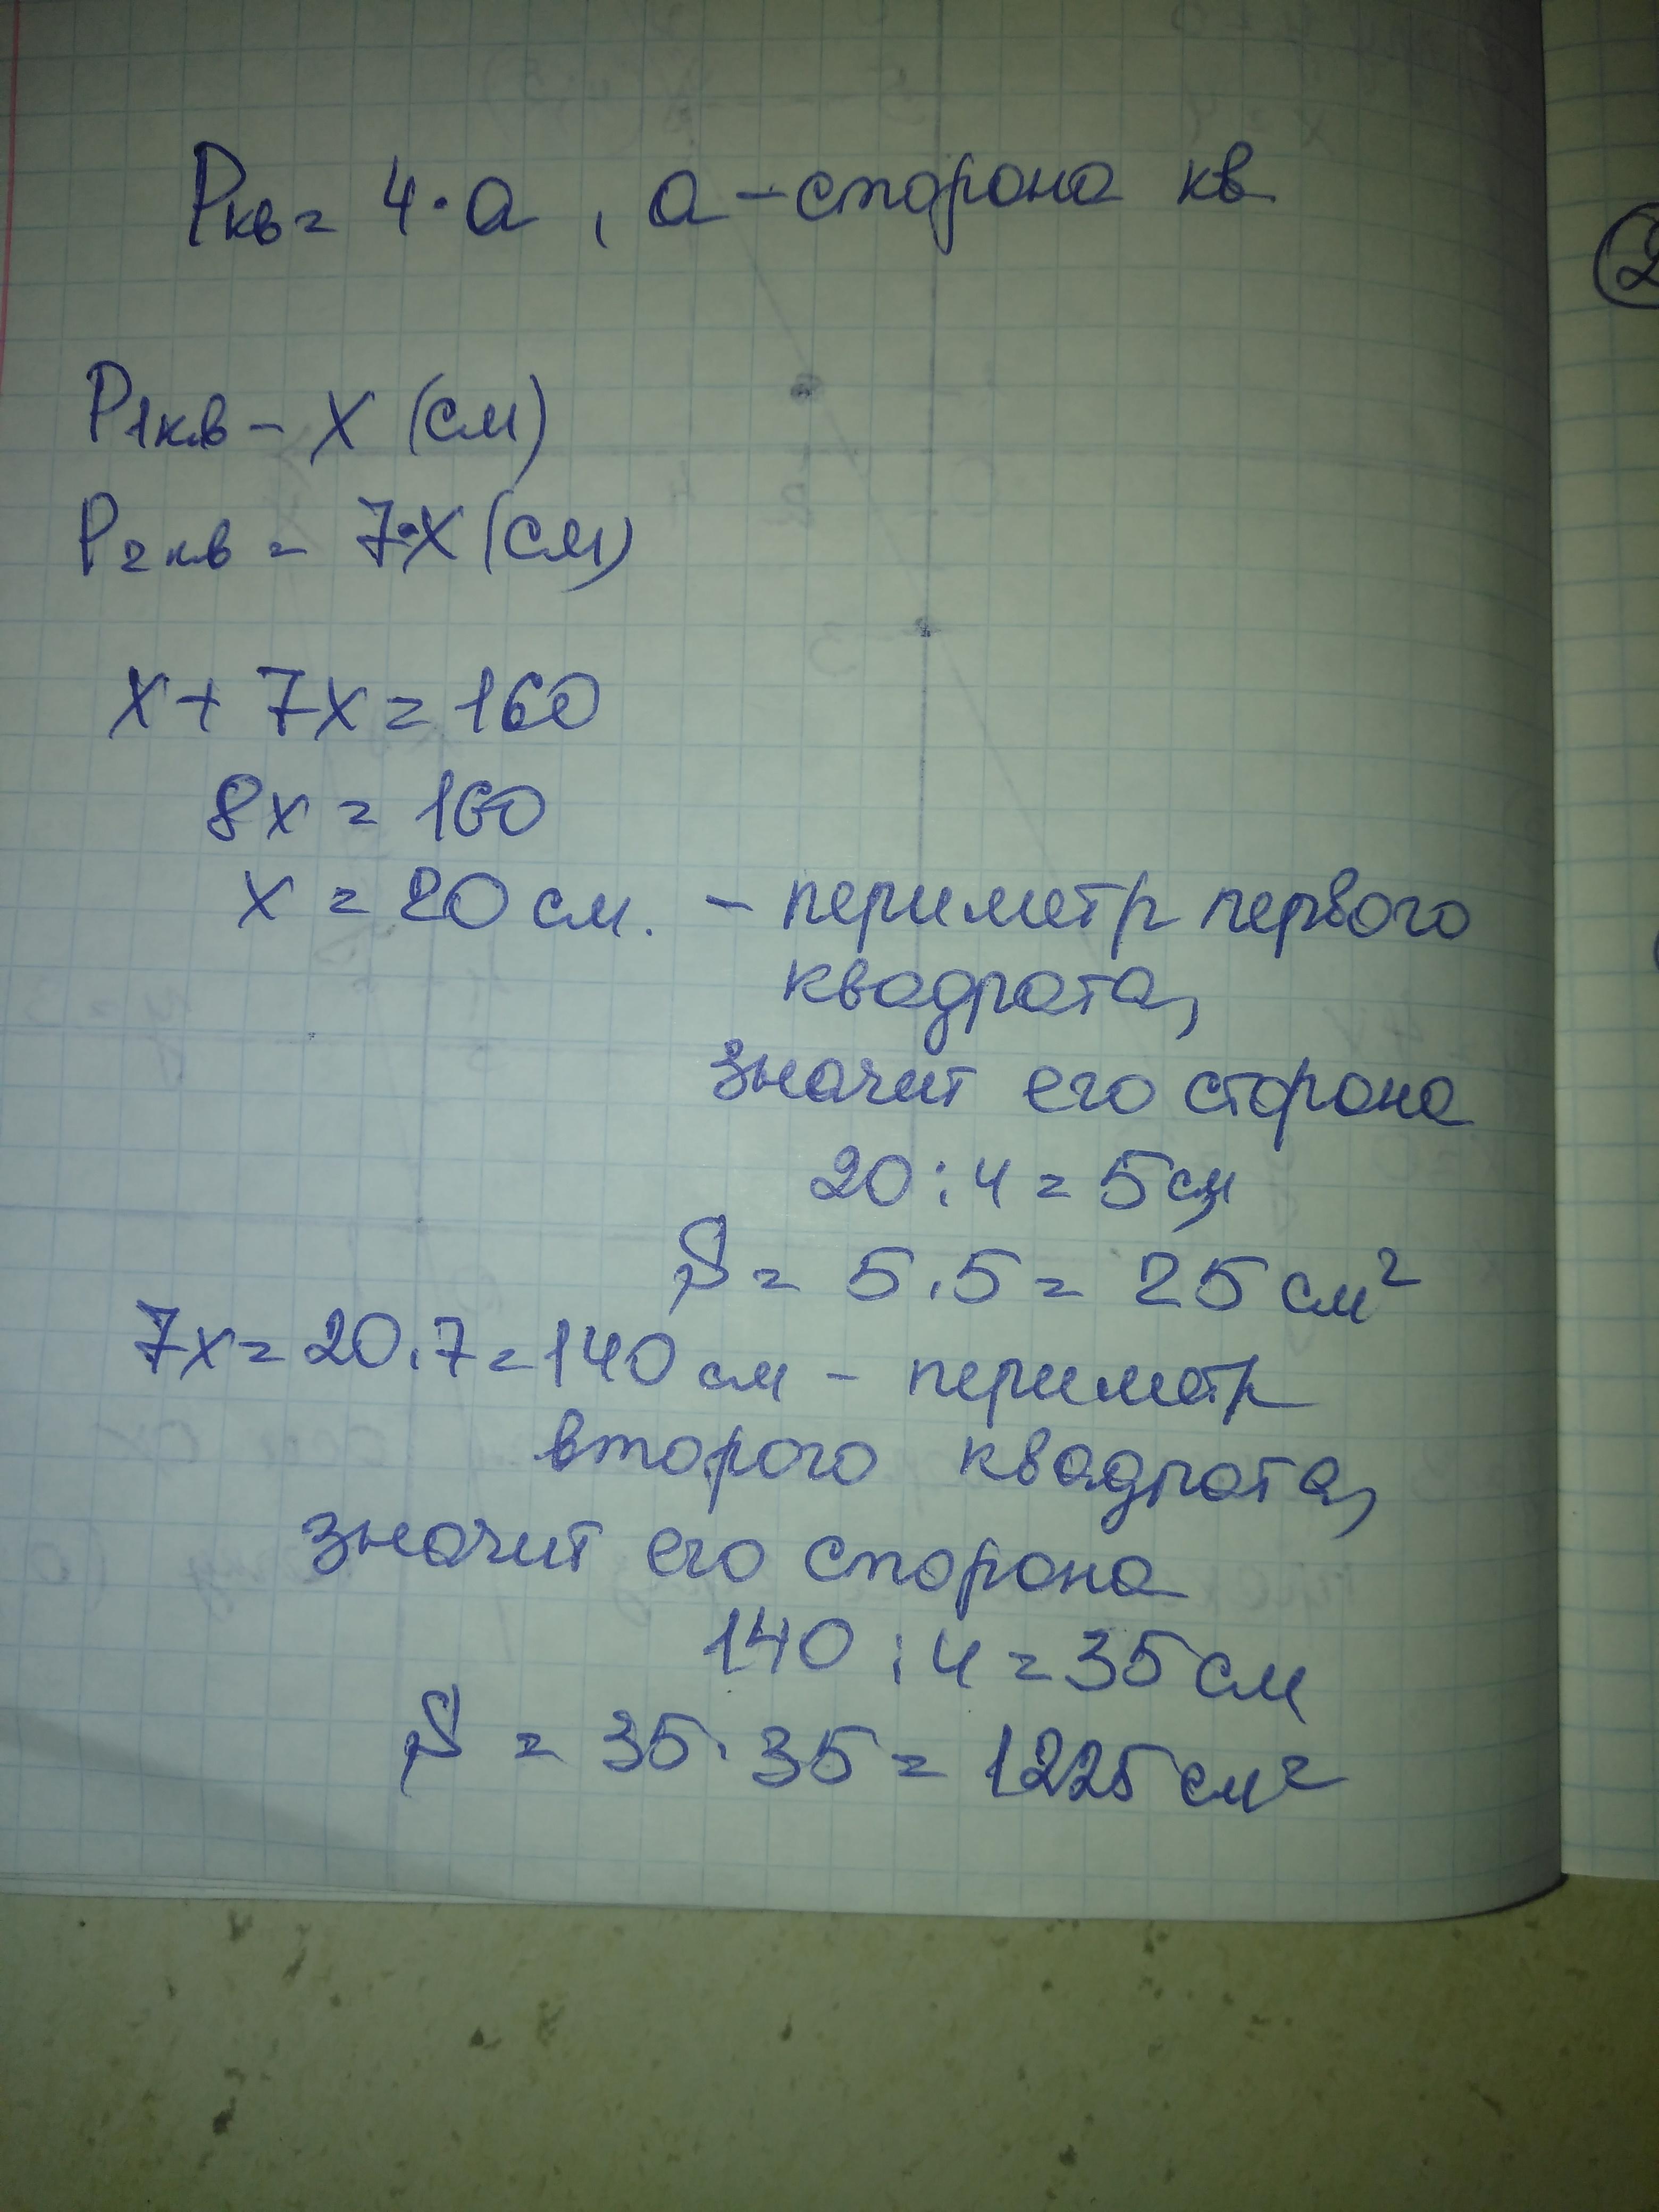 Pкв = 4·a, a – сторона кв
P1кв – x (см)
P2кв = 7·x (см)
x + 7x = 160
8x = 160
x = 20 см. – периметр первого
квадрата,
значит его сторона
20 : 4 = 5 см
S = 5·5 = 25 см²
7x = 20·7 = 140 см – периметр
второго квадрата,
значит его сторона
140 : 4 = 35 см
S = 35·35 = 1225 см²
2